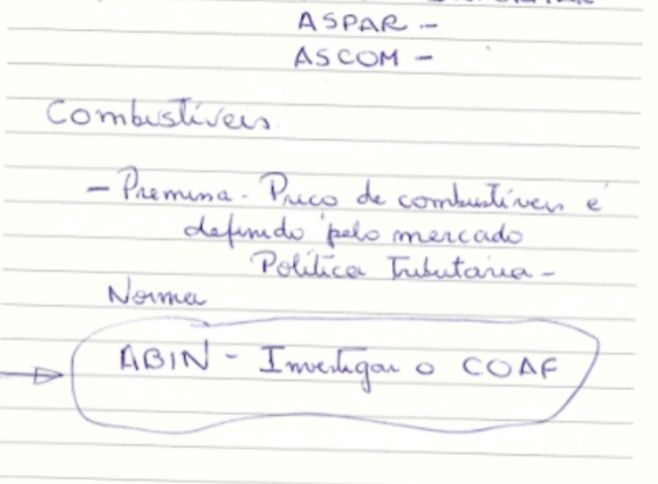 ASPAR -
ASCOM -
Combustíveis
- Premissa - Preço de combustíveis é
definido pelo mercado
Política Tributária -
Norma
ABIN - Investigar o COAF